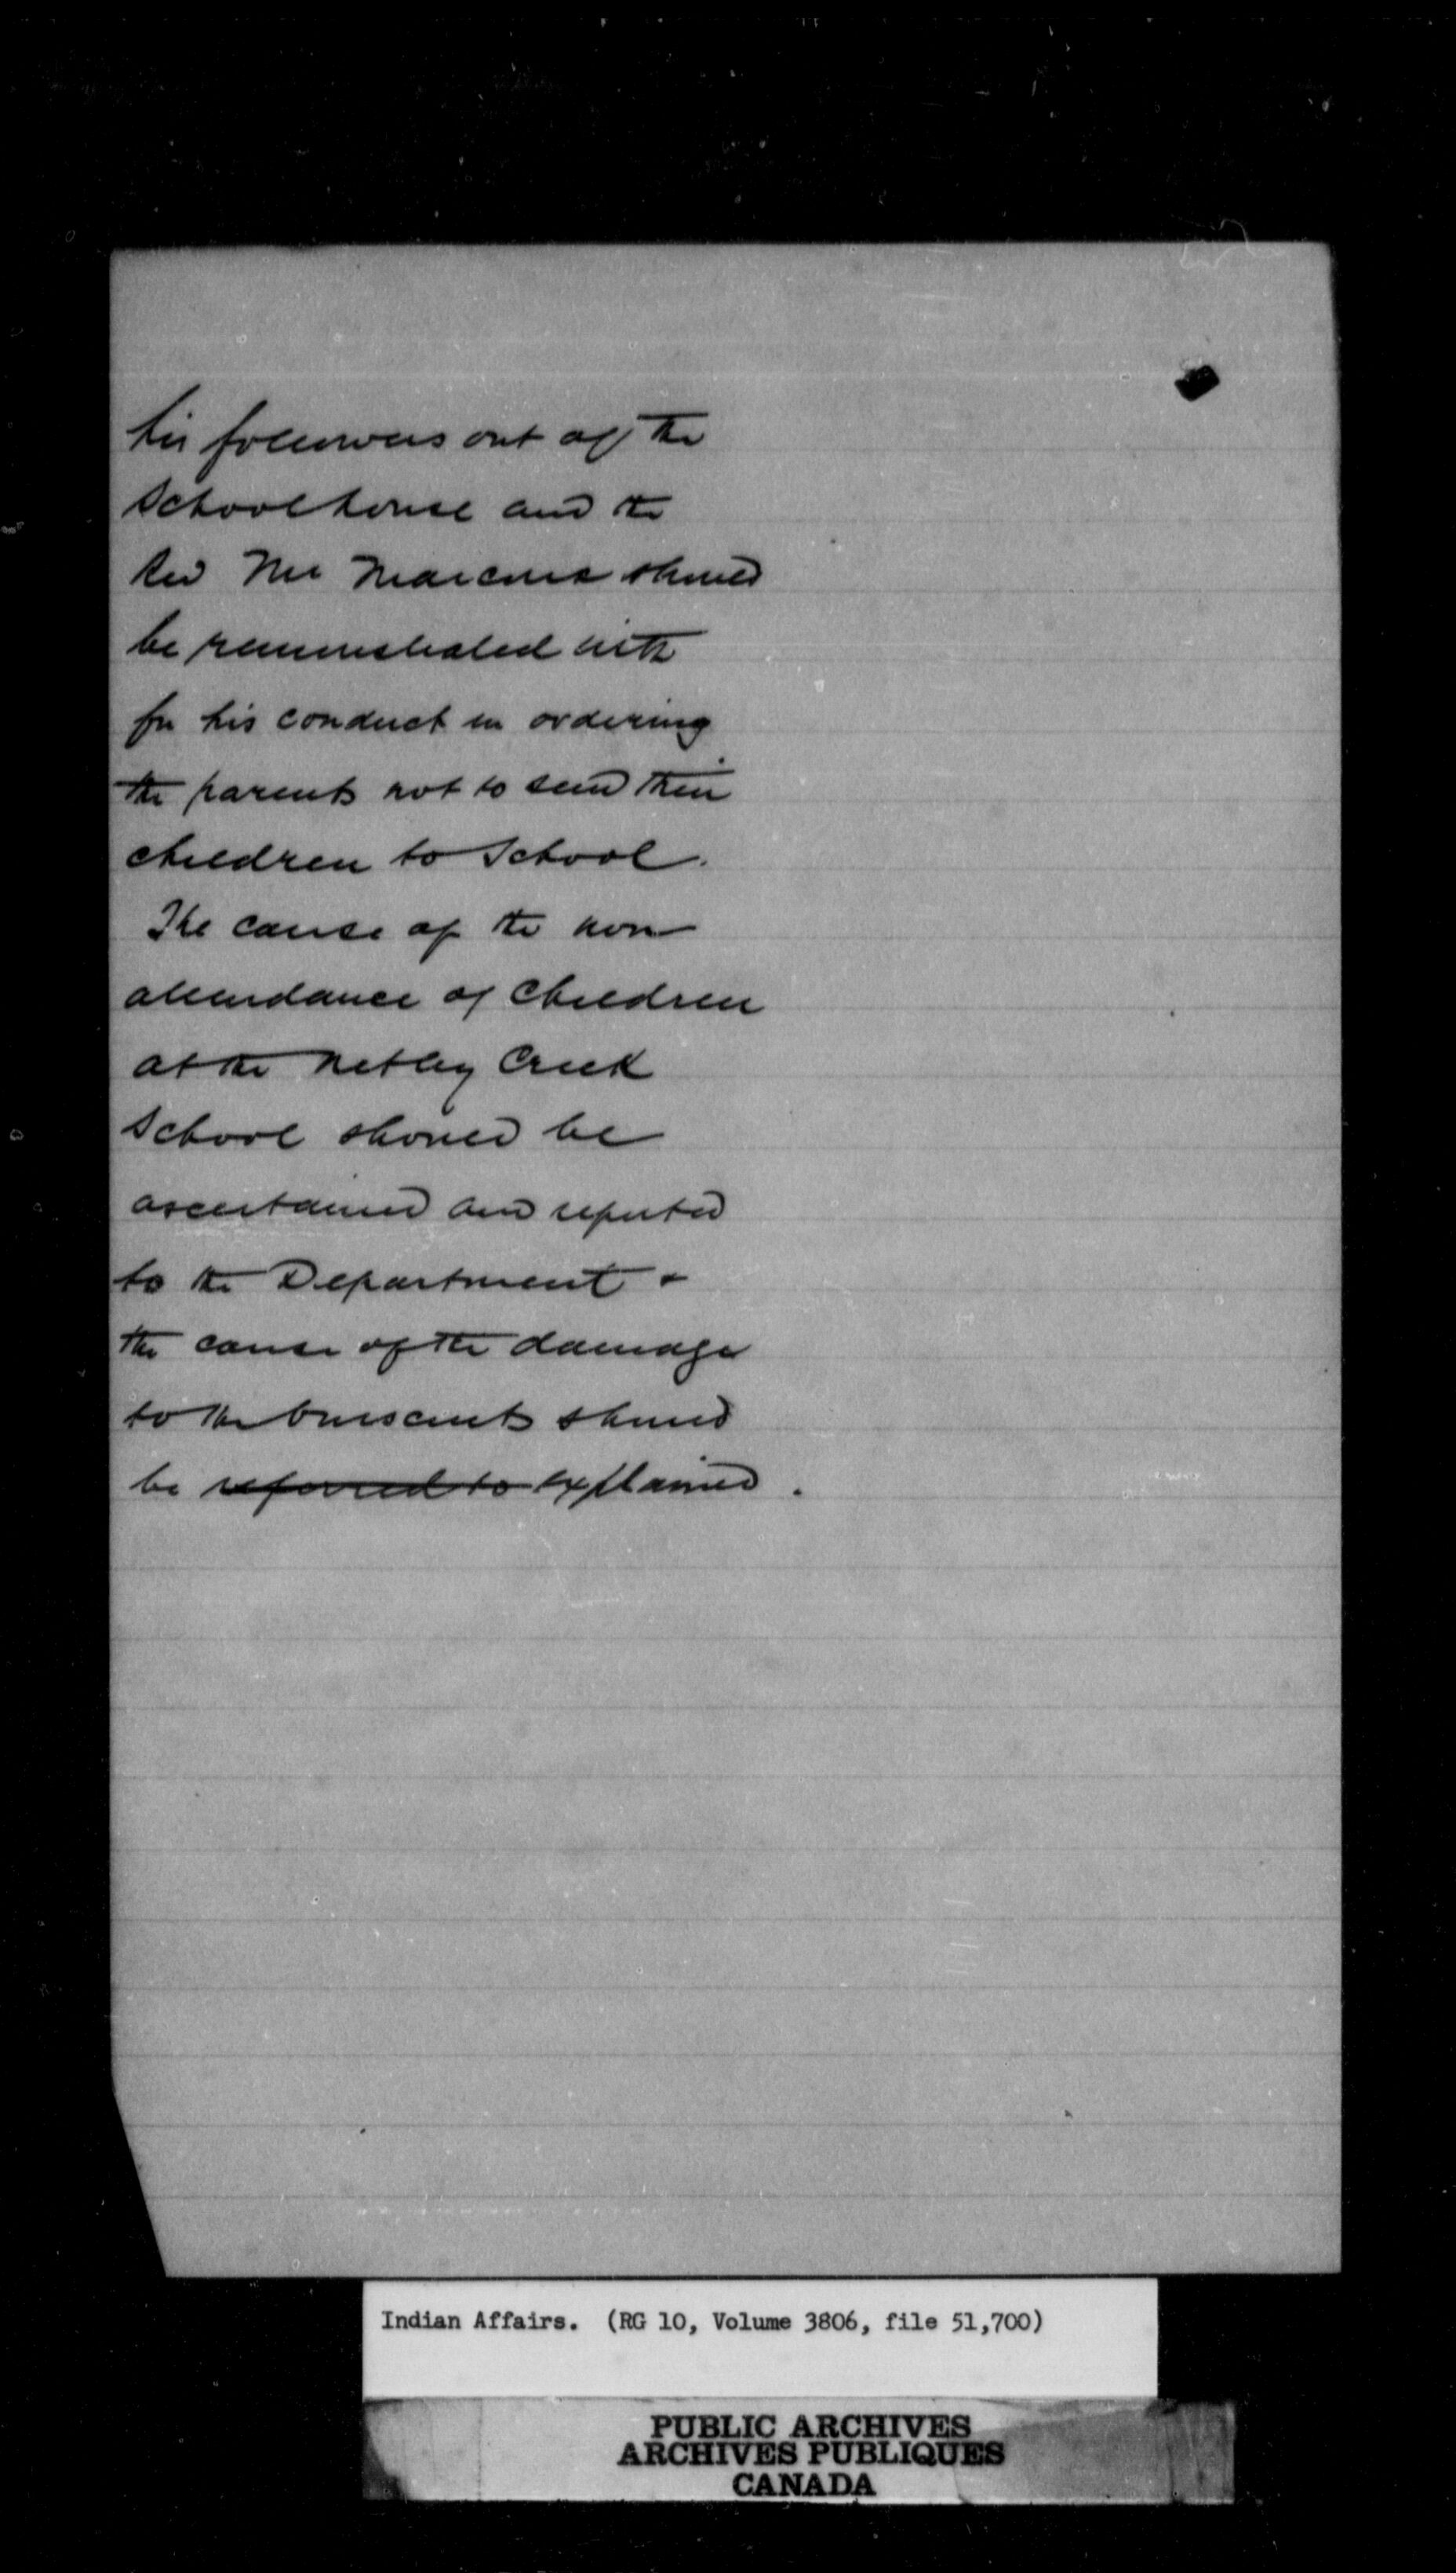 his followers out of the
Schoolhouse and the
Rev Mr Marcus should
be remonstrated with
for his conduct in ordering
the parents not to send their
children to School.
The cause of the non
attendance of children
at the Netley Creek
School should be
ascertained and reported
to the Department &
the cause of the damage
to the biscuits should
be referred to explained.
Indian Affairs. (RG 10, Volume 3806, file 51,700)
PUBLIC ARCHIVES
ARCHIVES PUBLIQUES
CANADA